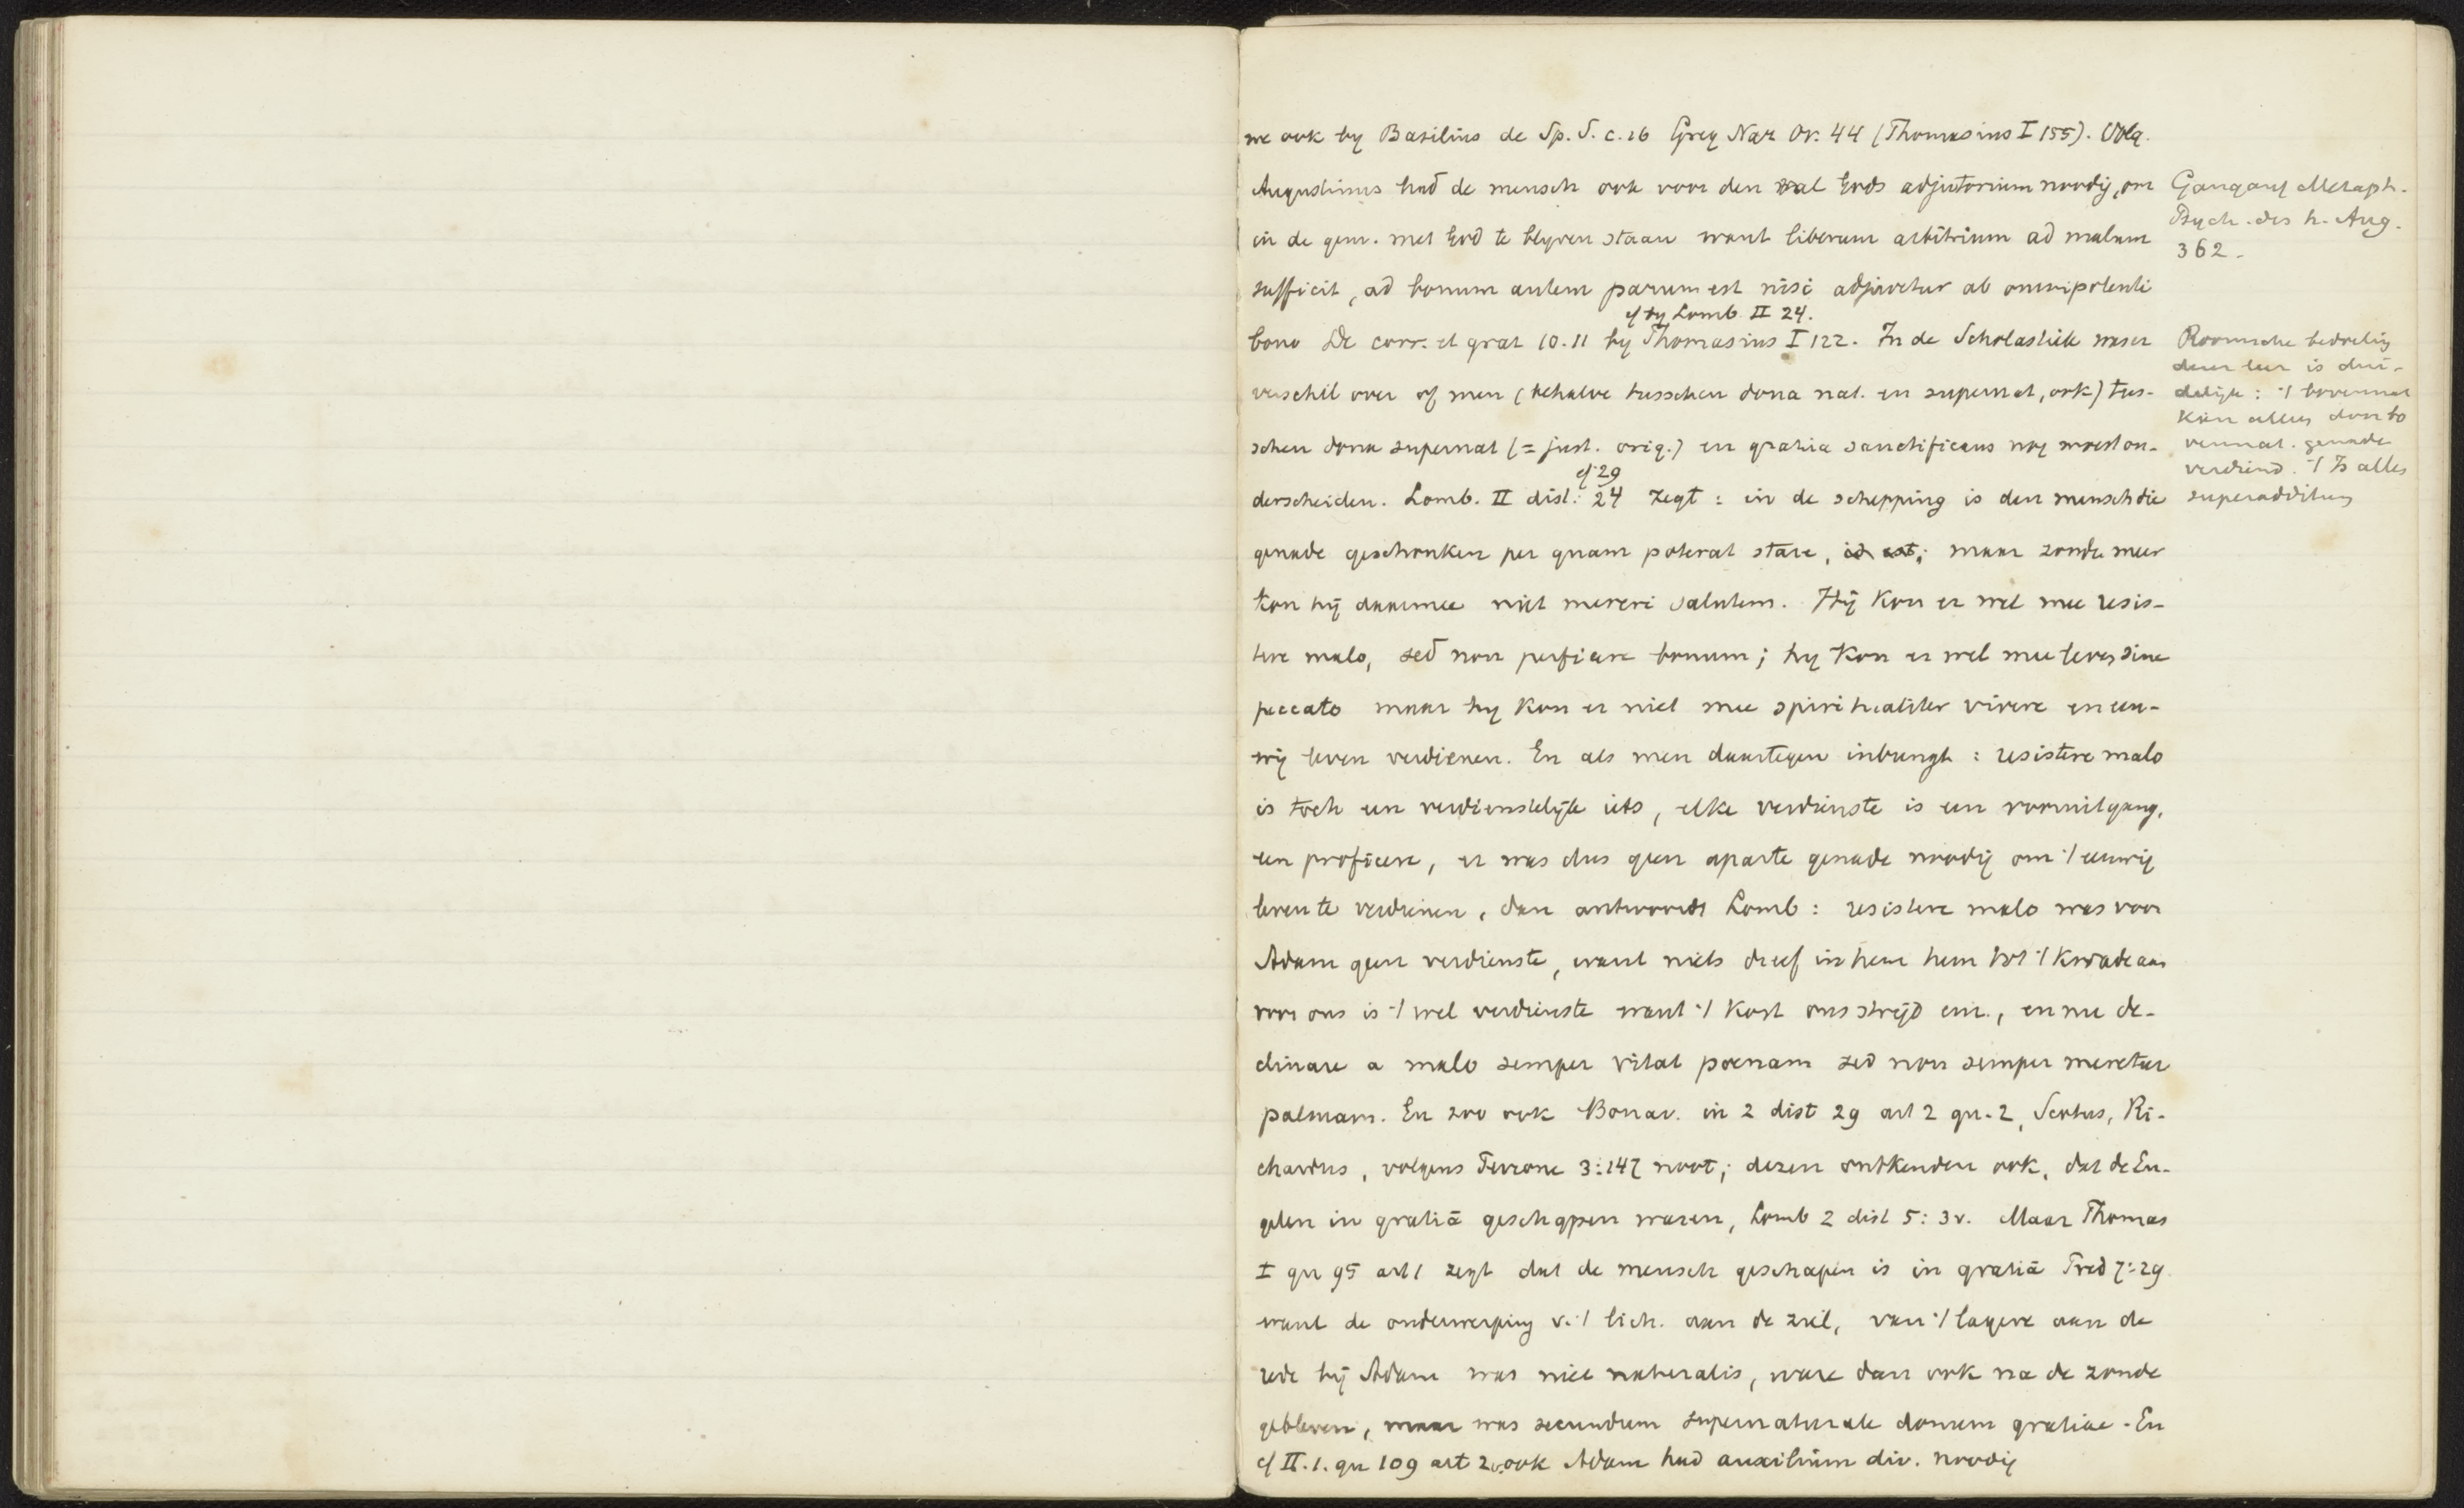 me ook by Basilius de Sp. S. c. 16 Greg Naz Or. 44 (Thomasius I 155). Volg.
Augustinus had de mensch ook voor den val Gods adjutorium noodig, om
in de gem. met God te blyven staan want liberum arbitrium ad malum
sufficit, ad bonum autem parum est nisi adjuvetur ab omnipotenti
cf by Lomb. II 24.
bono De corr. et grat 10.11 by Thomasius I 122. In de Scholastiek was er
verschil over of men (behalve tusschen dona nat. en supernat, ook) tus-
schen dona supernat (= just. orig.) en gratia sanctificans nog moest on-
cf 29
derscheiden. Lomb. II dist. 24 zegt : in de schepping is den mensch die
genade geschonken per quam poterat stare, id est; maar zonder meer
kon hij daarmee niet mereri salutem. Hij kon er wel mee resis-
tere malo, sed non perficere bonum; hy kon er wel mee leven sine
peccato maar hy kon er niet mee spiritualiter vivere en eeu-
wig leven verdienen. En als men daartegen inbrengt : resistere malo
is toch een verdienstelijk iets, elke verdienste is een vooruitgang,
een proficere, er was dus geen aparte genade noodig om 't eeuwig
leven te verdienen, dan antwoordt Lomb : resistere malo was voor
Adam geen verdienste, want niets dreef in hem hem tot 't kwade aan
voor ons is 't wel verdienste want 't kost ons strijd enz., en nu de-
clinare a malo semper vitat poenam sed non semper meretur
palmam. En zoo ook Bonav. in 2 dist 29 art 2 qu. 2, Scotus, Ri-
chardus, volgens Perrone 3:147 noot; dezen ontkenden ook, dat de En-
gelen in gratiā geschapen waren, Lomb 2 dist 5: 3v. Maar Thomas
I qu 95 art 1 zegt dat de mensch geschapen is in gratiā Trid 7:29
want de onderwerping v. 't lich. aan de ziel, van 't lagere aan de
rede bij Adam was niet naturalis, ware dan ook na de zonde
gebleven, maar was secundum supernaturale donum gratiae. En
cf II. 1. qu 109 art 2 v. ook Adam had auxilium div. noodig
Gangauf Metaph.
Psych. des h. Aug.
362.
Roomsche bedoeling
dezer leer is dui-
delijk : 't bovennat
kan alleen door bo
vennat. genade
verdiend. 't Is alles
superadditum